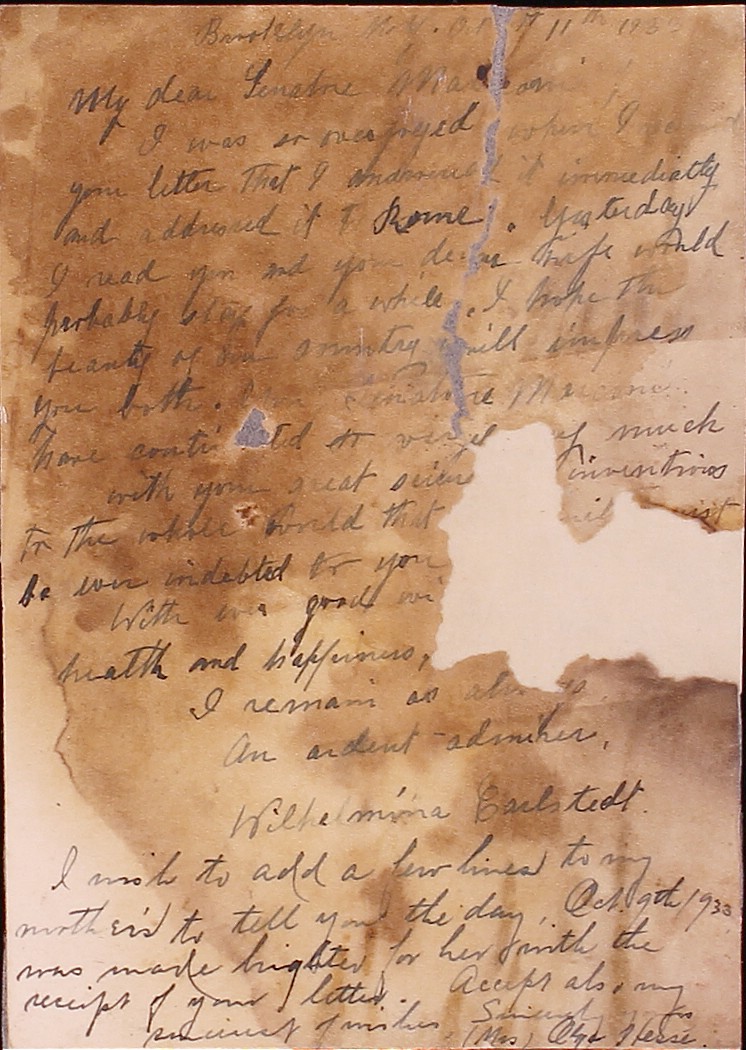 Brooklyn N.Y. Oct 11th 1933
My dear Senatore Marconi
I was so overjoyed when I
your letter that I answered it immediately
and addressed it to Rome. Yesterday
I read you and your dear wife would
probably stop for a while. I hope the
beauty of our country will impress
you both. Senatore Marconi
have cont ed so much
with your great inventions
to the whole World that
be ever indebted to you
With ever good wi
health and happiness,
I remain as always
An ardent admirer,
Wilhelmina Carlstedt.
I wish to add a few lines to my
mother's to tell you the day, Oct. 9th 1933
was made brighter for her with the
receipt of your letter. Accept also my
sincerest wishes Sincerely yours
(Mrs) Olga Hesse.